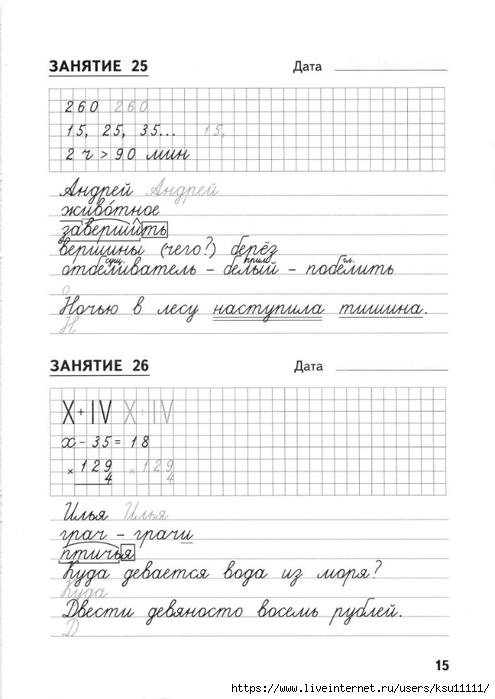 ЗАНЯТИЕ 25 Дата
260 260
15, 25, 35... 15,
2 ч > 90 мин
Андрей Андрей
живо́тное
завершить
вершины (чего?) берёз
сущ. прил. гл.
отбеливатель – белый – побелить
О
Ночью в лесу наступила тишина.
Н
ЗАНЯТИЕ 26 Дата
X + IV X + IV
x – 35 = 18
× 129 × 129
4 4
Илья Илья
грач – грачи
птичья
Куда девается вода из моря?
Куда
Двести девяносто восемь рублей.
Д
15
https://www.liveinternet.ru/users/ksu11111/